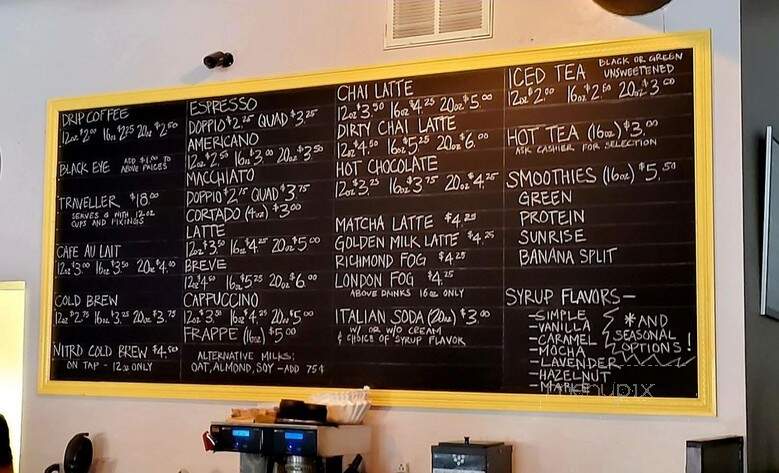 DRIP COFFEE
12oz $2.00 16oz $2.25 20oz $2.50
BLACK EYE ADD $1.00 TO ABOVE PRICES
TRAVELLER $18.00
SERVES 8 WITH 12OZ
CUPS AND FIXINGS
CAFE AU LAIT
12oz $3.00 16oz $3.50 20oz $4.00
COLD BREW
12oz $2.75 16oz $3.25 20oz $3.75
NITRO COLD BREW $4.50
ON TAP - 12oz ONLY
ESPRESSO
DOPPIO $2.25 QUAD $3.25
AMERICANO
12oz $2.55 16oz $3.00 20oz $3.50
MACCHIATO
DOPPIO $2.75 QUAD $3.75
CORTADO (4oz) $3.00
LATTE
12oz $3.50 16oz $4.25 20oz $5.00
BREVE
12oz $4.50 16oz $5.25 20oz $6.00
CAPPUCCINO
12oz $3.50 16oz $4.25 20oz $5.00
FRAPPE (16oz) $5.00
ALTERNATIVE MILKS:
OAT, ALMOND, SOY - ADD 75¢
CHAI LATTE
12oz $3.50 16oz $4.25 20oz $5.00
DIRTY CHAI LATTE
12oz $4.50 16oz $5.25 20oz $6.00
HOT CHOCOLATE
12oz $3.25 16oz $3.75 20oz $4.25
MATCHA LATTE $4.25
GOLDEN MILK LATTE $4.25
RICHMOND FOG $4.25
LONDON FOG $4.25
ABOVE DRINKS 16oz ONLY
ITALIAN SODA (20oz) $3.00
W/ OR W/O CREAM
& CHOICE OF SYRUP FLAVOR
ICED TEA BLACK OR GREEN UNSWEETENED
12oz $2.00 16oz $2.50 20oz $3.00
HOT TEA (16oz) $3.00
ASK CASHIER FOR SELECTION
SMOOTHIES (16oz) $5.50
GREEN
PROTEIN
SUNRISE
BANANA SPLIT
SYRUP FLAVORS -
- SIMPLE
- VANILLA
- CARAMEL
- MOCHA
- LAVENDER
- HAZELNUT
- MAPLE
*AND
SEASONAL
OPTIONS!
menupix